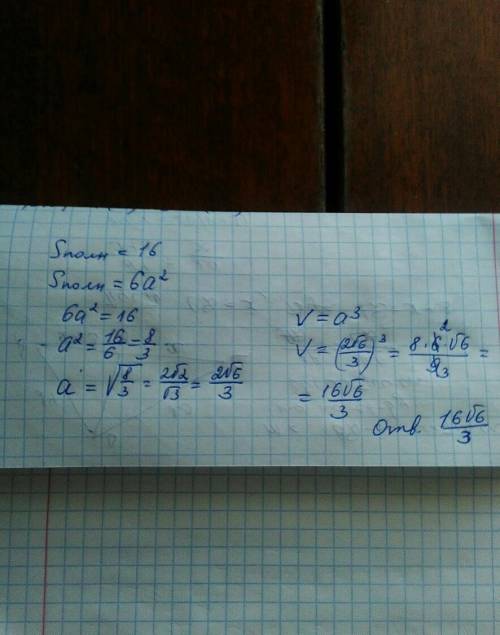 Sполн = 16
Sполн = 6a²
6a² = 16
a² = 16/6 = 8/3
a = √(8/3) = 2√2/√3 = 2√6/3
V = a³
V = (2√6/3)³ = 8·6̸²·√6/9̸₃ =
= 16√6/3
Отв. 16√6/3